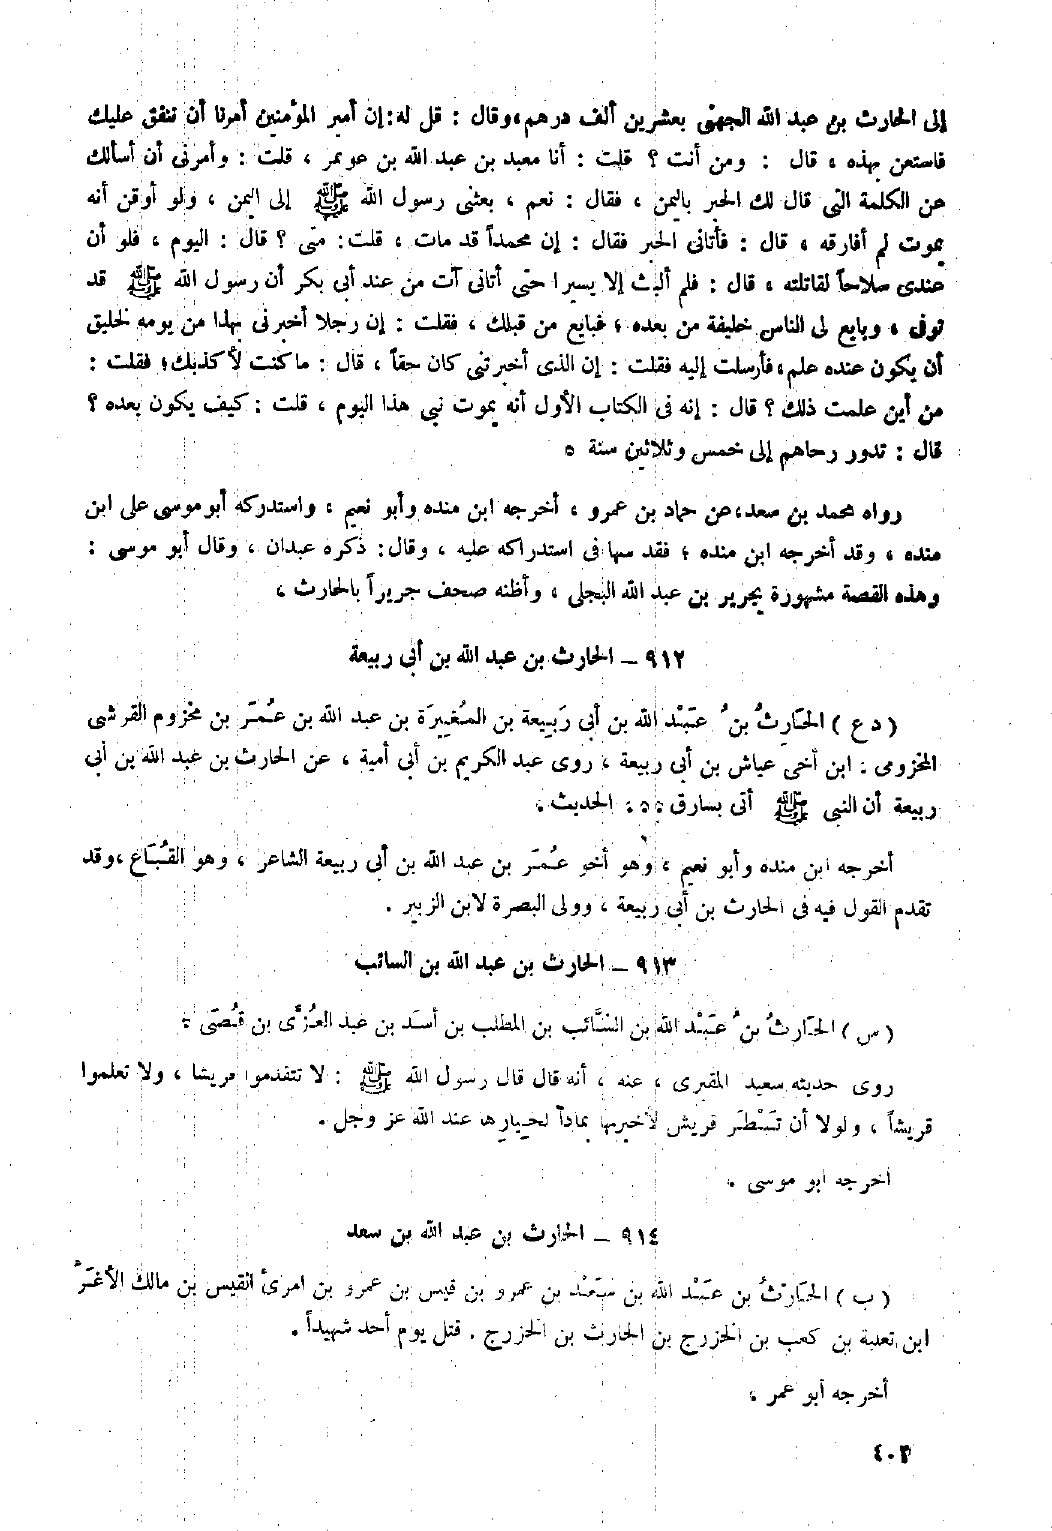 إلى الحارث بن عبد الله الجهنى بعشرين ألف درهم، وقال : قل له : إن أمير المؤمنين أمرنا أن ننفق عليك
فاستعن بهذه ، قال : ومن أنت ؟ قلت : أنا معبد بن عبد الله بن عويمر ، قلت : وأمرنى أن أسألك
عن الكلمة التى قال لك الحبر باليمن ، فقال : نعم ، بعثنى رسول الله ﷺ إلى اليمن ، ولو أوقن أنه
يموت لم أفارقه ، قال : فأتانى الحبر فقال : إن محمداً قد مات ، قلت : متى ؟ قال : اليوم ، فلو أن
عندى سلاحاً لقاتلته ، قال : فلم ألبث إلا يسيرا حتى أتانى آت من عند أبى بكر أن رسول الله ﷺ قد
توفى ، وبايع لى الناس خليفة من بعده ؛ فبايع من قبلك ، فقلت : إن رجلا أخبرنى بهذا من يومه لخليق
أن يكون عنده علم، فأرسلت إليه فقلت : إن الذى أخبرتنى كان حقاً ، قال : ما كنت لأكذبك؛ فقلت :
من أين علمت ذلك ؟ قال : إنه فى الكتاب الأول أنه يموت نبى هذا اليوم ، قلت : كيف يكون بعده ؟
قال : تدور رحاهم إلى خمس وثلاثين سنة .
رواه محمد بن سعد، عن حماد بن عمرو ، أخرجه ابن منده وأبو نعيم ، واستدركه أبو موسى على ابن
منده ، وقد أخرجه ابن منده ؛ فقد سها فى استدراكه عليه ، وقال : ذكره عبدان ، وقال أبو موسى :
وهذه القصة مشهورة بجرير بن عبد الله البجلى ، وأظنه صحف جريراً بالحارث ،
٩١٢ – الحارث بن عبد الله بن أبى ربيعة
( د ع ) الحَارِثُ بنُ عَبْد الله بن أبى رَبِيعة بن المُغِيرَة بن عبد الله بن عُمَرَ بن مخزوم القرشى
المخزومى : ابن أخى عياش بن أبى ربيعة ، روى عبد الكريم بن أبى أمية ، عن الحارث بن عبد الله بن أبى
ربيعة أن النبى ﷺ أتى بسارق ... الحديث .
أخرجه ابن منده وأبو نعيم ، وهو أخو عُمَرَ بن عبد الله بن أبى ربيعة الشاعر ، وهو القُبَاع ، وقد
تقدم القول فيه فى الحارث بن أبى ربيعة ، وولى البصرة لابن الزبير .
٩١٣ – الحارث بن عبد الله بن السائب
( س ) الحَارِثُ بنُ عَبْد الله بن السَّائب بن المطلب بن أسَد بن عبد العُزَّى بن قُصَى .
روى حديثه سعيد المقبرى ، عنه ، أنه قال قال رسول الله ﷺ : لا تتقدموا قريشا ، ولا تعلموا
قريشاً ، ولولا أن تَبْطَر قريش لأخبرتها بماذا لخيارها عند الله عز وجل .
أخرجه أبو موسى .
٩١٤ – الحارث بن عبد الله بن سعد
( ب ) الحَارِثُ بن عَبْد الله بن سَعْد بن عمرو بن قيس بن عمرو بن امرئ القيس بن مالك الأغَرّ
ابن ثعلبة بن كعب بن الخزرج بن الحارث بن الخزرج . قتل يوم أحد شهيداً .
أخرجه أبو عمر .
٤٠٣